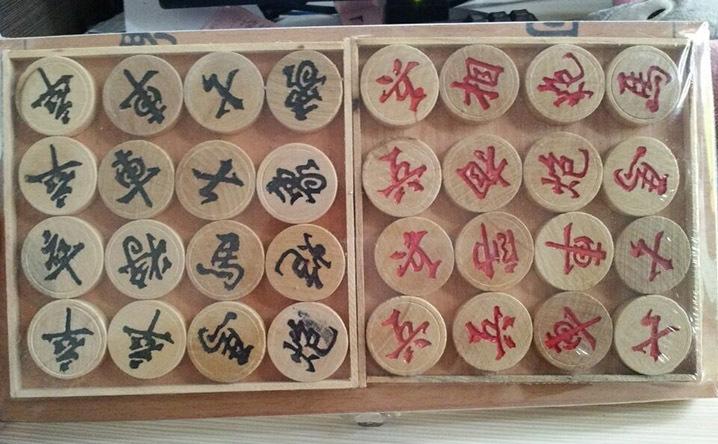 卒 車 士 象 兵 相 炮 馬
卒 車 士 象 兵 相 炮 馬
卒 将 馬 炮 兵 帥 車 士
卒 卒 馬 炮 兵 兵 車 士